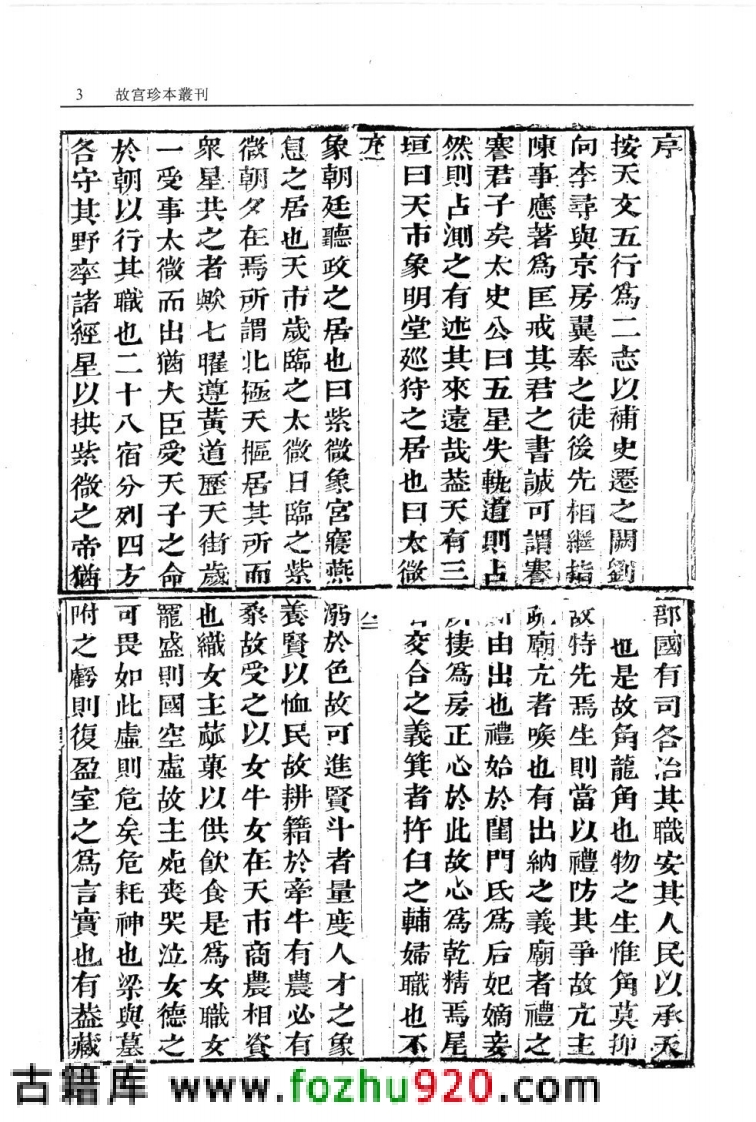 3 故宮珍本叢刊
序
按天文五行爲二志以補史遷之闕劉
向李尋與京房翼奉之徒後先相繼指
陳事應著爲匡戒其君之書誠可謂謇
謇君子矣太史公曰五星失軌道則占
然則占測之有述其來遠哉葢天有三
垣曰天市象明堂廵狩之居也曰太微
序
象朝廷聽政之居也曰紫微象宮寢燕
息之居也天市歲臨之太微日臨之紫
微朝夕在焉所謂北極天樞居其所而
衆星共之者歟七曜遵黃道歷天街歲
一受事太微而出猶大臣受天子之命
於朝以行其職也二十八宿分列四方
各守其野率諸經星以拱紫微之帝猶
部國有司各治其職安其人民以承天
也是故角龍角也物之生惟角莫抑
故特先焉生則當以禮防其爭故亢主
疏廟亢者喉也有出納之義廟者禮之
由出也禮始於閨門氐爲后妃嫡妾
所棲爲房正心於此故心爲乾精焉尾
有交合之義箕者杵臼之輔婦職也不
溺於色故可進賢斗者量度人才之象
養賢以恤民故耕籍於牽牛有農必有
桑故受之以女牛女在天市商農相資
也織女主蓏菓以供飲食是爲女職女
寵盛則國空虛故主死喪哭泣女德之
可畏如此虛則危矣危耗神也梁與墓
附之虧則復盈室之爲言實也有葢藏
古籍库 www.fozhu920.com